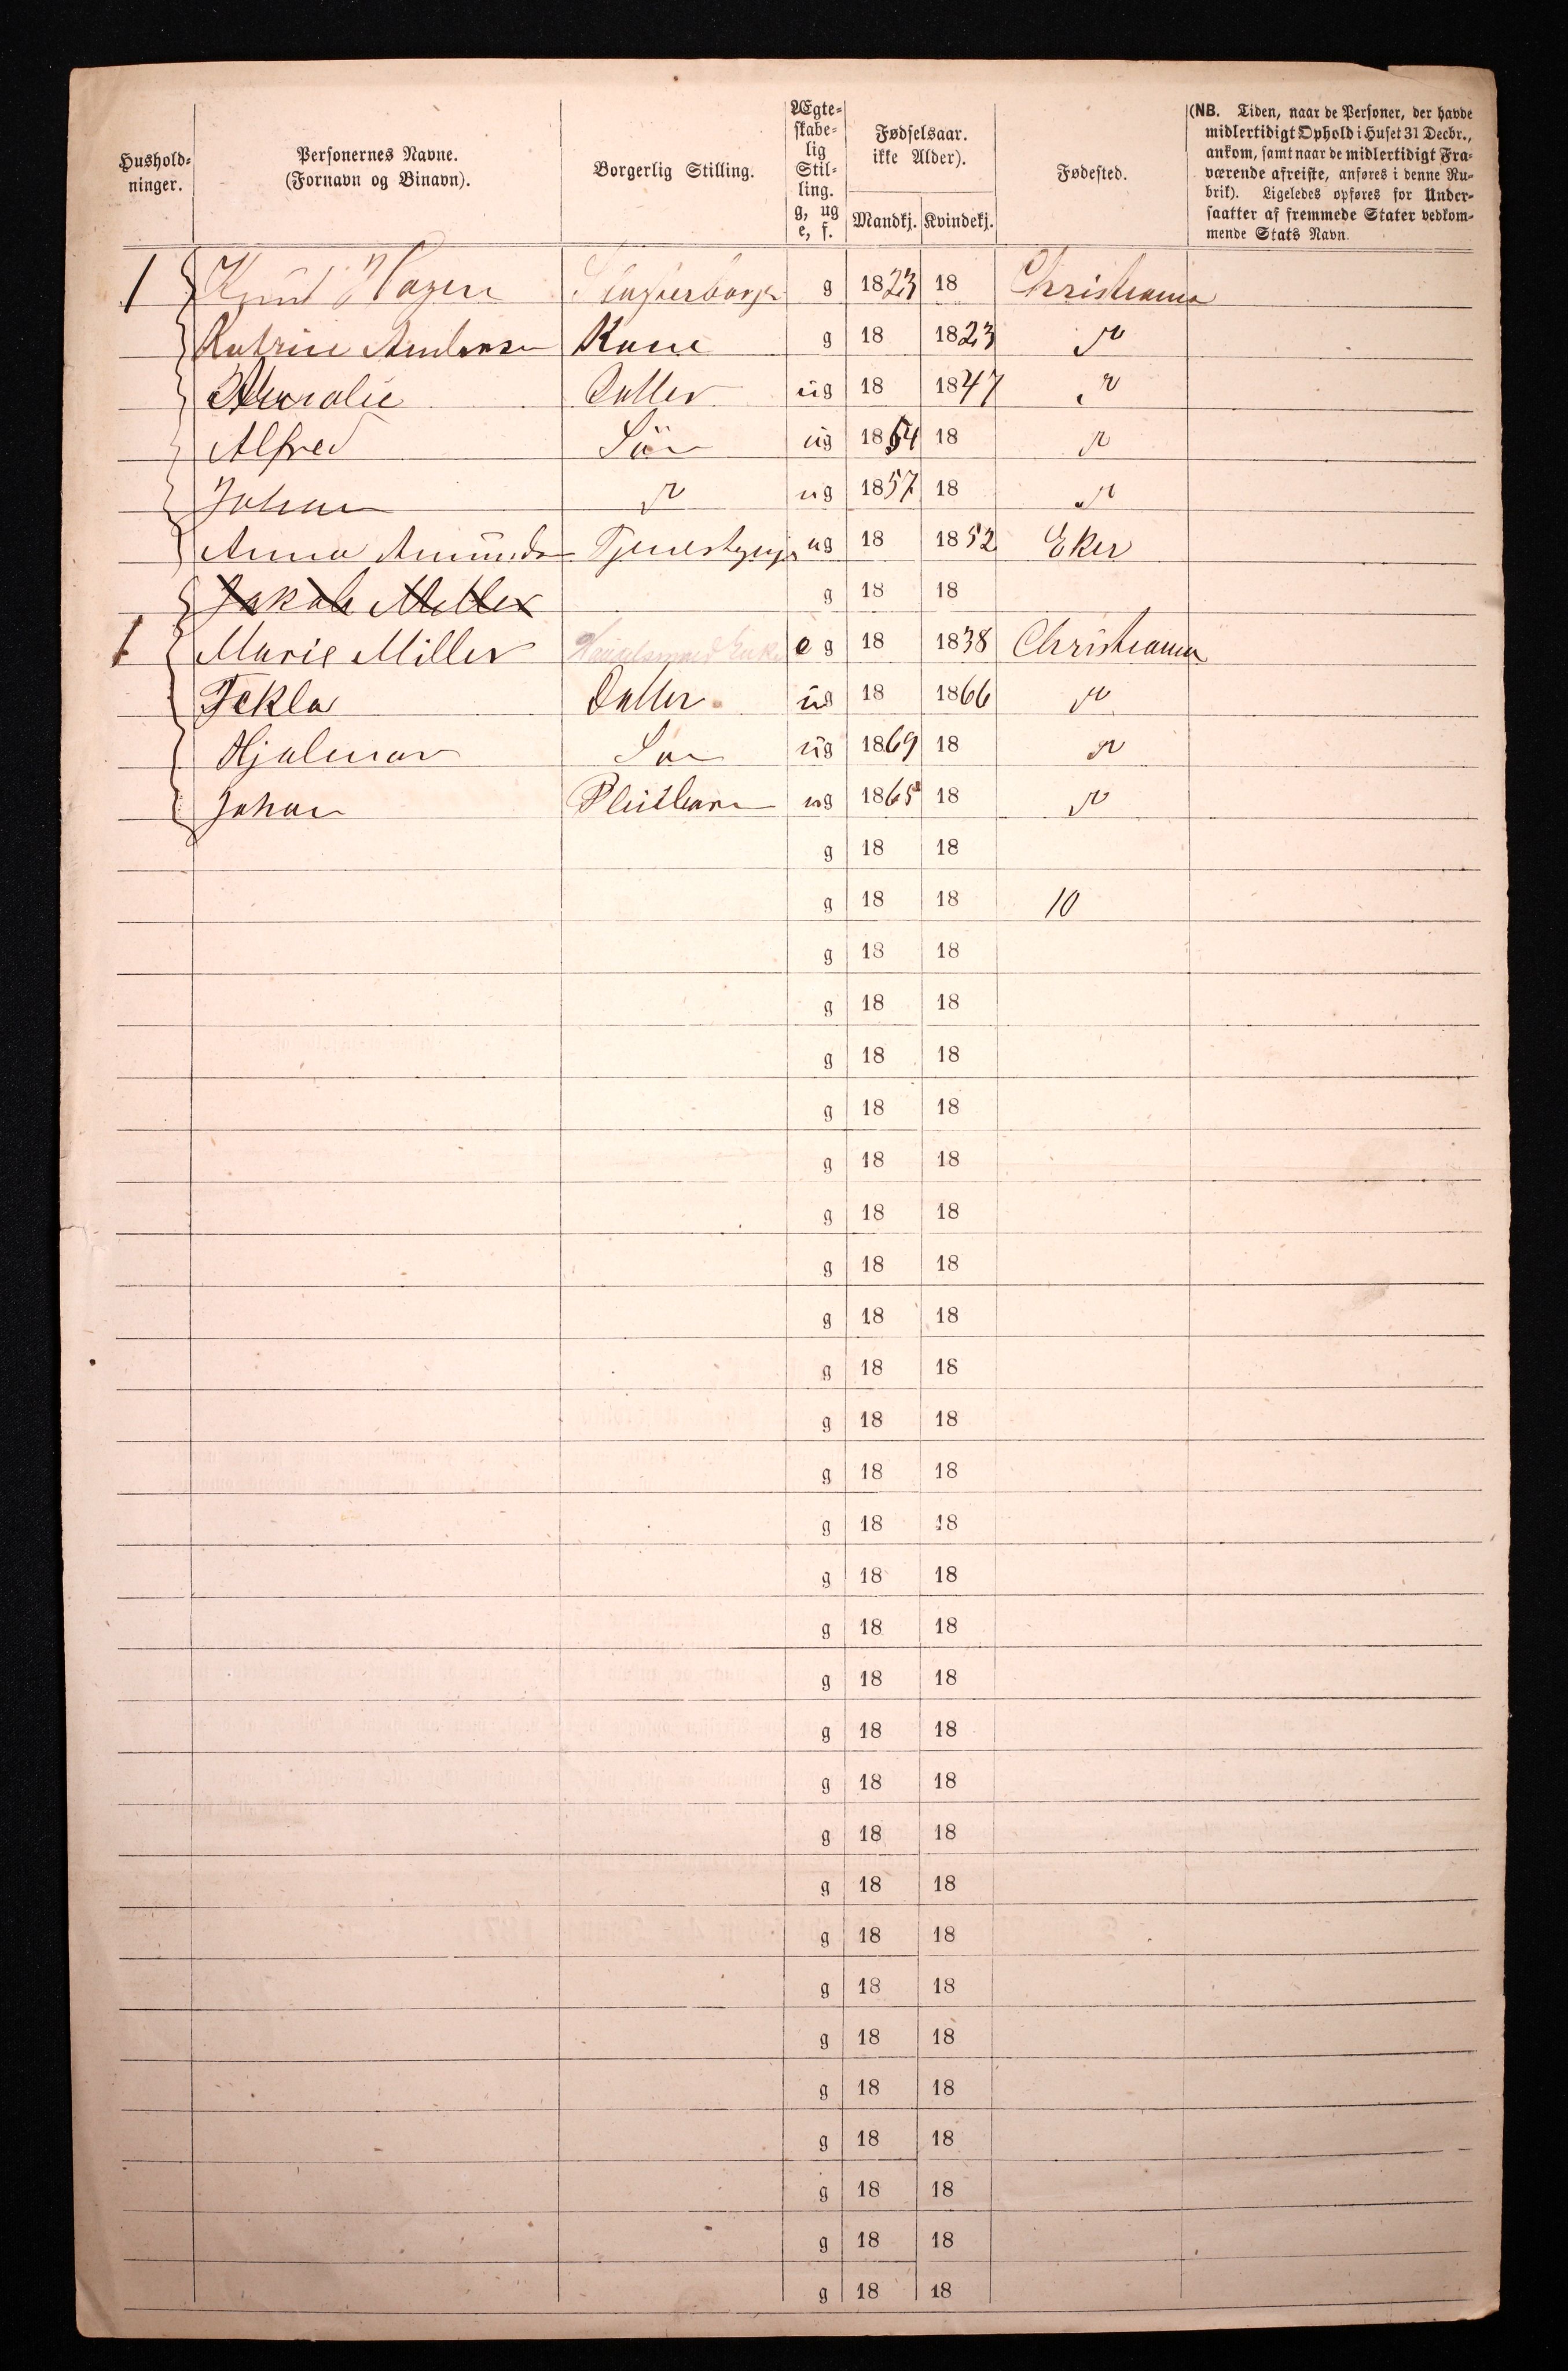 Hushold-
ninger.
Personernes Navne.
(Fornavn og Binavn).
Borgerlig Stilling.
Ægte-
skabe-
lig
Stil-
ling.
g, ug
e, f.
Fødselsaar.
ikke Alder).
Mandkj. Kvindekj.
Fødested.
(NB. Tiden, naar de Personer, der havde
midlertidigt Ophold i Huset 31 Decbr.,
ankom, samt naar de midlertidigt Fra-
værende afreiste, anføres i denne Ru-
brik). Ligeledes opføres for Under-
saatter af fremmede Stater vedkom-
mende Stats Navn.
1 Knud Hagen g 1823 18 Christiania
Katrine Andersen Kone g 18 1823 "
Datter ug 18 1847 "
Alfred Sön ug 1854 18 "
Johan " ug 1857 18 "
Anna Amunds Tjenestepige ug 18 1852 Eker
Jakob Miller g 18 18
1 Marie Miller Handelsmand Enke e g 18 1838 Christiania
Tekla Datter ug 18 1866 "
Hjalmar Søn ug 1869 18 "
Johan Pleiebarn ug 1865 18 "
g 18 18
g 18 18 10
g 18 18
g 18 18
g 18 18
g 18 18
g 18 18
g 18 18
g 18 18
g 18 18
g 18 18
g 18 18
g 18 18
g 18 18
g 18 18
g 18 18
g 18 18
g 18 18
g 18 18
g 18 18
g 18 18
g 18 18
g 18 18
g 18 18
g 18 18
g 18 18
g 18 18
g 18 18
g 18 18